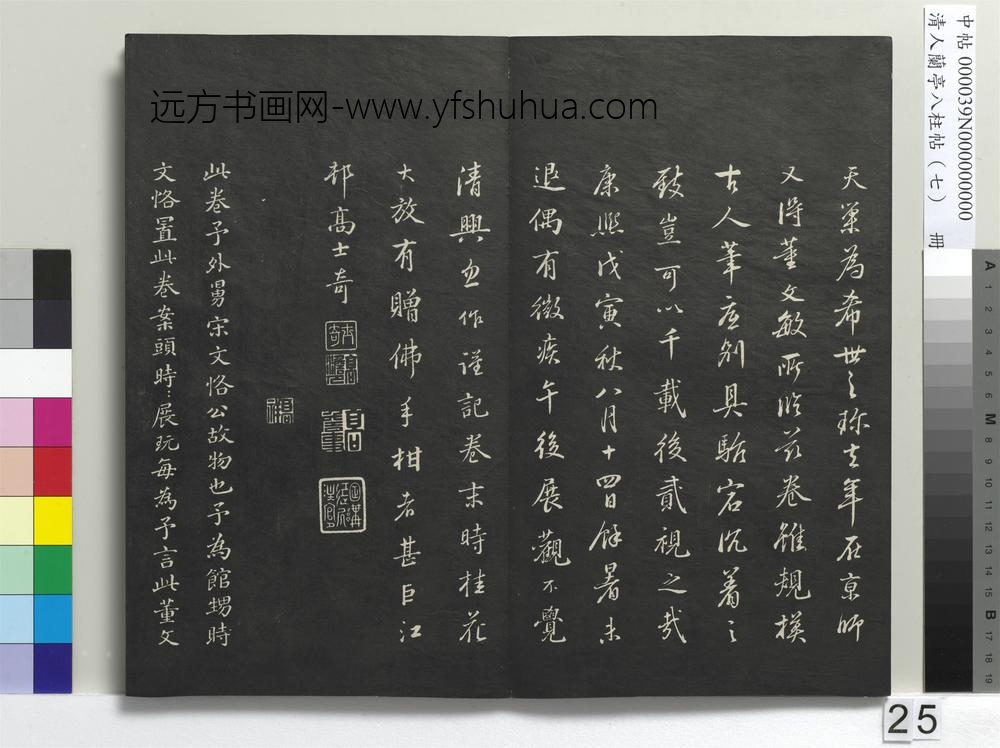 远方书画网-www.yfshuhua.com
中帖 000039N000000000
清人蘭亭八柱帖（七） 冊
天策為希世之珎去年在京師
又得董文敏所臨茲卷雖規模
古人筆應別具駘宕沉着之
致豈可以千載後貳視之哉
康熙戊寅秋八月十四日餘暑未
退偶有微疾午後展觀不覺
清興忽作謹記卷末時桂花
大放有贈佛手柑者甚巨江
邨高士奇
此卷予外舅宋文恪公故物也予為館甥時
文恪置此卷案頭時:展玩每為予言此董文
A 1 2 3 4 5 6 M 8 9 10 11 12 13 14 15 B 17 18 19
25